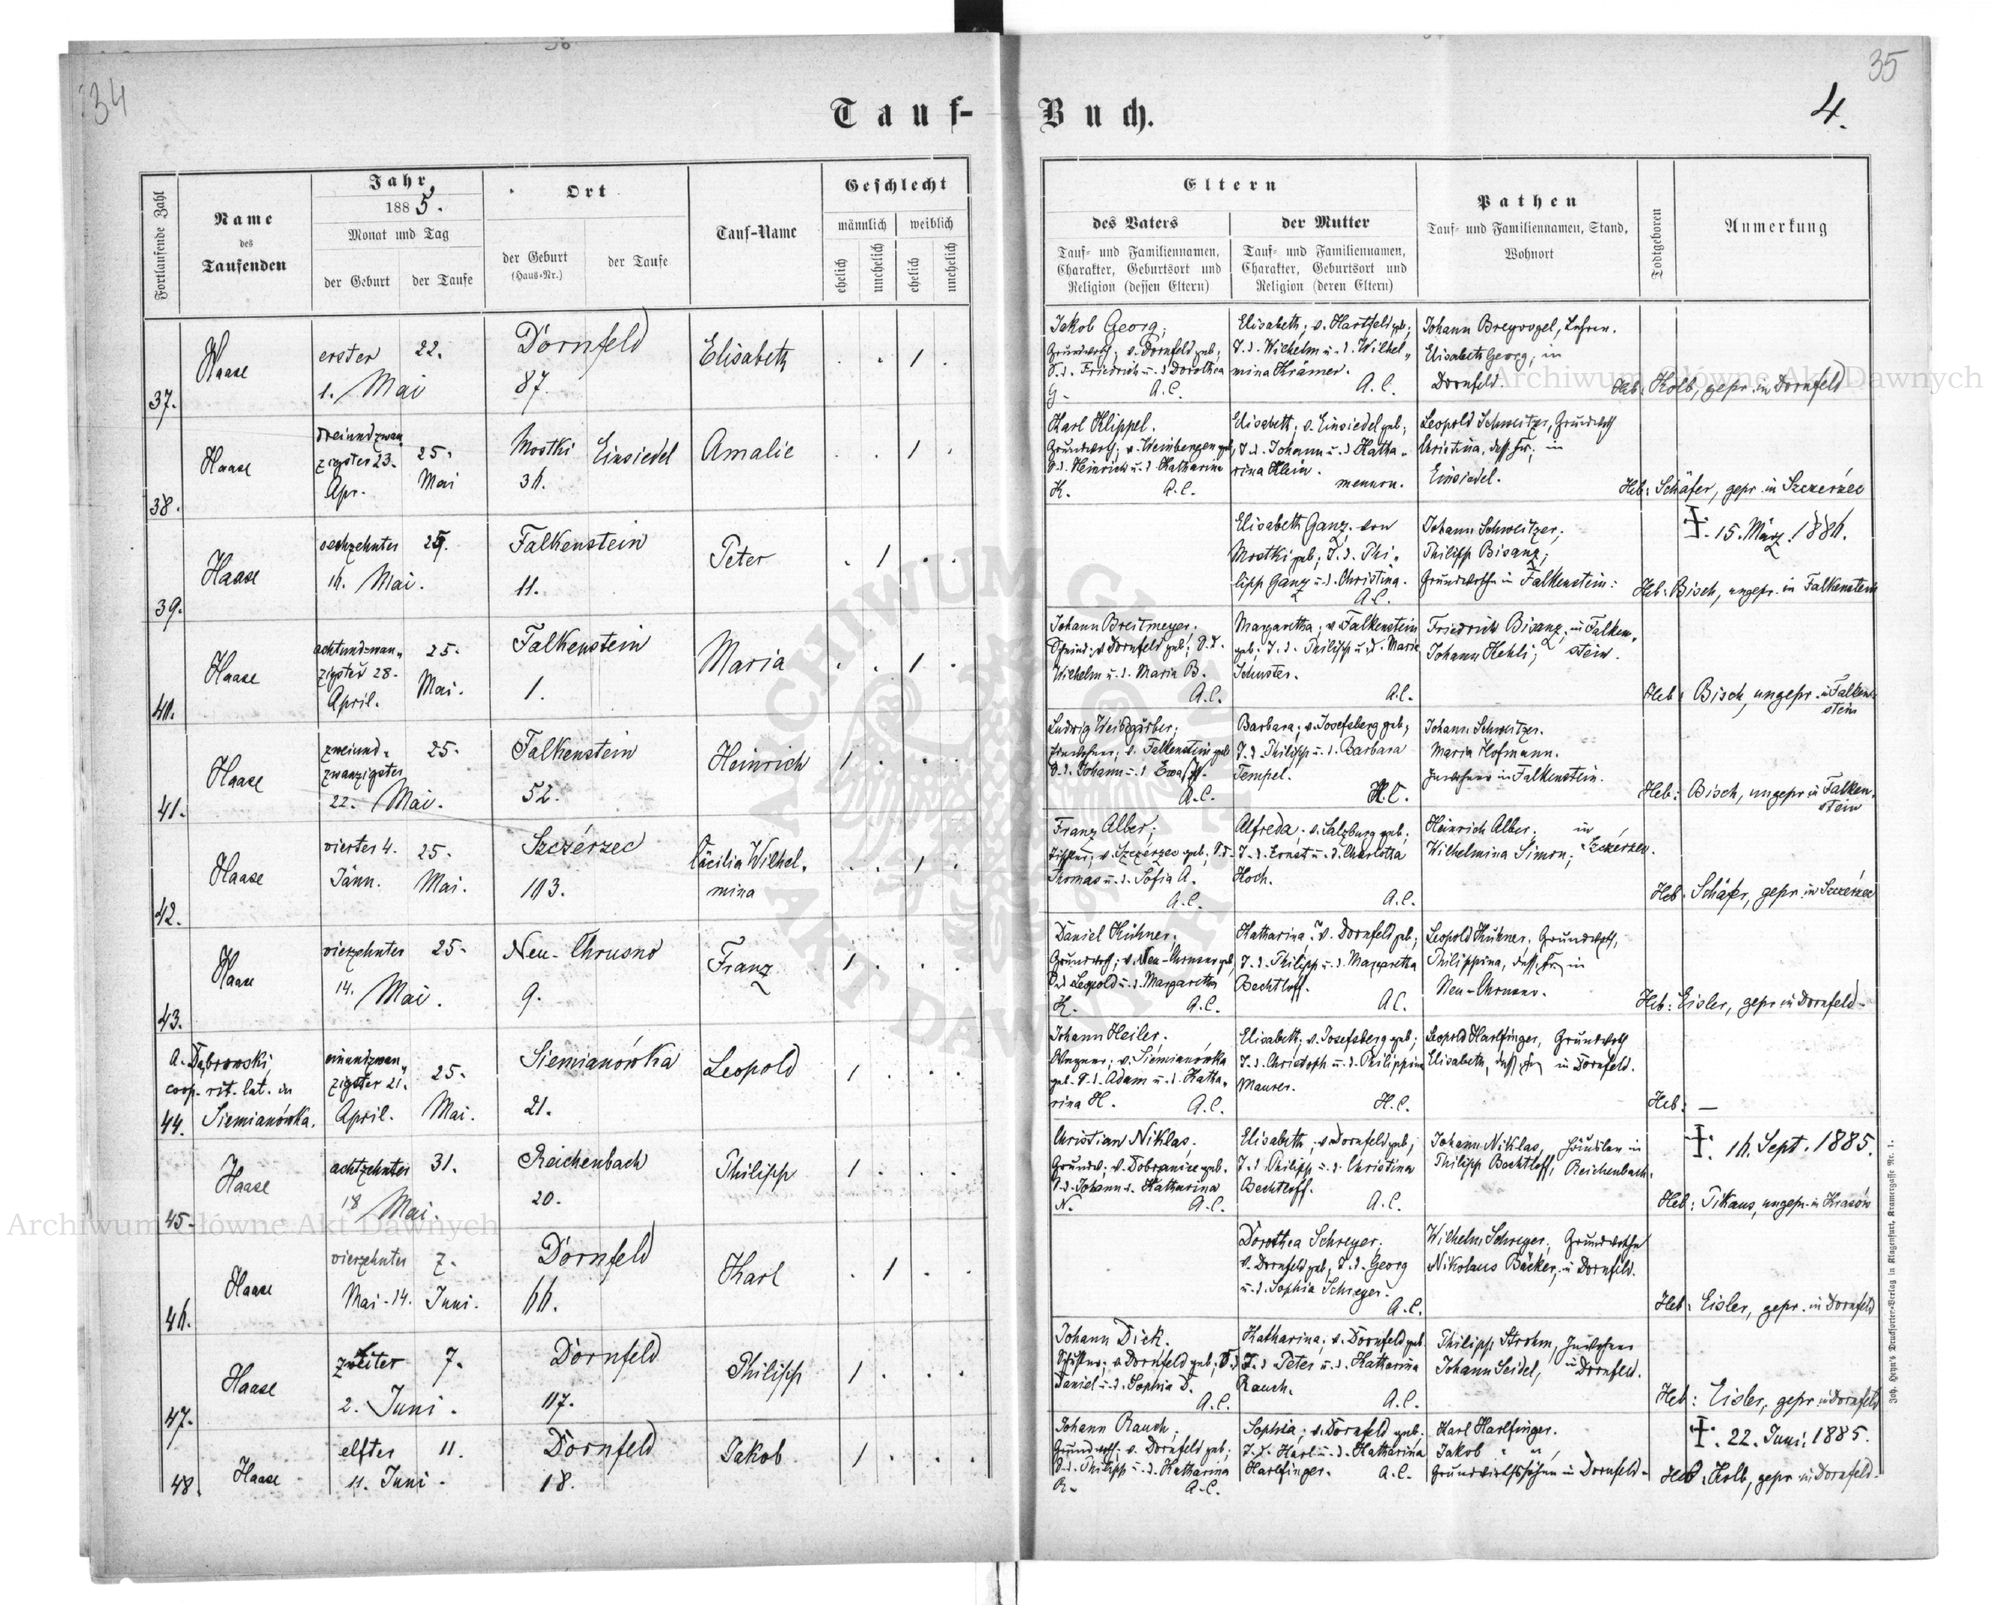 34
35
Tauf-Buch.
4.
Fortlaufende Zahl
Name
des
Taufenden
Jahr
1885.
Monat und Tag
der Geburt
der Taufe
Ort
der Geburt
(Haus-Nr.)
der Taufe
Tauf-Name
Geschlecht
männlich
weiblich
ehelich
unehelich
ehelich
unehelich
Eltern
des Vaters
Tauf- und Familiennamen,
Charakter, Geburtsort und
Religion (dessen Eltern)
der Mutter
Tauf- und Familiennamen,
Charakter, Geburtsort und
Religion (deren Eltern)
Pathen
Tauf- und Familiennamen, Stand,
Wohnort
Todtgeboren
Anmerkung
37.
Haase
erster
1. Mai
22.
Dornfeld
87.
Elisabeth
1
Jakob Georg;
Grundwirth; v. Dornfeld geb;
S. d. Friedrich u. d. Dorothea
G. A.C.
Elisabeth; v. Hartfeld geb;
T. d. Wilhelm u. d. Wilhel-
mina Krämer.
A.C.
Johann Breyvogel, Lehrer.
Elisabeth Georg; in
Dornfeld.
Heb: Kolb, gepr. in Dornfeld
38.
Haase
dreiundzwan
zigster 23.
Apr.
25.
Mai
Mostki
36.
Einsiedel
Amalie
1
Karl Klippel.
Grundwirth; v. Weinbergen geb;
S. d. Heinrich u. d. Katharina
K. A.C.
Elisabeth; v. Einsiedel geb;
T. d. Johann u. d. Katha-
rina Klein.
mennon.
Leopold Schweitzer, Grundwirth
Christina, dess. Fr; in
Einsiedel.
Heb: Schäfer, gepr. in Szczérzec
39.
Haase
sechzehnter
16. Mai.
25.
Falkenstein
11.
Peter
1
Elisabeth Ganz; von
Mostki geb; T. d. Phi-
lipp Ganz u. d. Christina.
A.C.
Johann Schweitzer;
Philipp Bisanz;
Grundwirthe in Falkenstein:
†. 15. März 1886.
Heb: Bisch, ungepr. in Falkenstein
40.
Haase
achtundzwan-
zigster 28.
April.
25.
Mai.
Falkenstein
1.
Maria
1
Johann Breitmeyer.
v. Dornfeld geb; S. d.
Wilhelm u. d. Maria B.
A.C.
Margaretha; v. Falkenstein
geb; T. d. Philipp u. d. Maria
Schuster.
A.C.
Friedrich Bisanz; in Falken-
Johann Kehli; stein.
Heb: Bisch, ungepr. in Falken-
stein
41.
Haase
zweiund-
zwanzigster
22. Mai.
25.
Falkenstein
52.
Heinrich
1
Ludwig
Inwohner; v. Falkenstein geb
S. d. Johann u. d. Ewa
A.C.
Barbara; v. Josefsberg geb;
T. d. Philipp u. d. Barbara
Tempel.
H.C.
Johann Schweitzer.
Maria Hofmann.
Inwohner in Falkenstein.
Heb: Bisch, ungepr. in Falken-
stein
42.
Haase
vierter 4.
Jänn.
25.
Mai.
Szczérzec
103.
Cäcilia Wilhel-
mina
1
Franz Alber;
v. Szczerzec geb; S. d.
Thomas u. d. Sofia A.
A.C.
Alfreda; v. Salzburg geb;
T. d. Ernst u. d. Charlotta
Hoch.
A.C.
Heinrich Alber. in
Wilhelmina Simon; Szczérzec.
Heb: Schäfer, gepr. in Szczérzec
43.
Haase
vierzehnter
14. Mai.
25.
Neu-Chrusno
9.
Franz
1
Daniel Kühner.
Grundwirth; v. Neu-Chrusno geb;
S. d. Leopold u. d. Margaretha
K. A.C.
Katharina; v. Dornfeld geb;
T. d. Philipp u. d. Margaretha
Bechtloff.
A.C.
Leopold Kühner, Grundwirth,
Philippina, dess. Fr; in
Neu-Chrusno.
Heb: Eisler, gepr. in Dornfeld.
44.
A. Dąbrowski,
coop. rit. lat. in
Siemianówka.
einundzwan-
zigster 21.
April.
25.
Mai.
Siemianówka
21.
Leopold
1
Johann Heiler.
Wagner; v. Siemianówka
geb. S. d. Adam u. d. Katha-
rina H. A.C.
Elisabeth; v. Josefsberg geb;
T. d. Christoph u. d. Philippina
Maurer.
H.C.
Leopold Harlfinger, Grundwirth
Elisabeth, dess. Fr; in Dornfeld.
Heb: —
45.
Haase
achtzehnter
18 Mai.
31.
Reichenbach
20.
Philipp
1
Christian Niklas.
Grundw; v. Dobrzanica geb.
S. d. Johann u. Katharina
N. A.C.
Elisabeth; v. Dornfeld geb;
T. d. Philipp u. d. Christina
Bechtloff.
A.C.
Johann Niklas, Häusler in
Philipp Bechtloff, Reichenbach.
†. 16. Sept. 1885.
Heb: Pikaus, ungepr. in Krasów
46.
Haase
vierzehnter
Mai. 14.
7.
Juni.
Dornfeld
66.
Karl
1
Dorothea Schreyer.
v. Dornfeld geb; T. d. Georg
u. d. Sophia Schreyer.
A.C.
Wilhelm Schreyer; Grundwirthe
Nikolaus Bäcker; in Dornfeld.
Heb: Eisler, gepr. in Dornfeld
47.
Haase
zweiter
2. Juni.
7.
Dornfeld
117.
Philipp
1
Johann Dick.
Schuster; v. Dornfeld geb; S. d.
Daniel u. d. Sophia D.
A.C.
Katharina; v. Dornfeld geb.
T. d. Peter u. d. Katharina
Rauch.
A.C.
Philipp Strohm, Inwohner
Johann Seidel, in Dornfeld.
Heb: Eisler, gepr. in Dornfeld
48.
Haase
elfter
11. Juni.
11.
Dornfeld
18.
Jakob
1
Johann Rauch;
Grundwirth; v. Dornfeld geb;
S. d. Philipp u. d. Katharina
R. A.C.
Sophia; v. Dornfeld geb.
T. d. Karl u. d. Katharina
Harlfinger. A.C.
Karl Harlfinger.
Jakob " "
Grundwirthssöhne in Dornfeld.
†. 22. Juni 1885.
Heb: Kolb, gepr. in Dornfeld.
Joh. Heyn's Drucksorten-Verlag in Klagenfurt, Kramergasse Nr. 1.
Archiwum Główne Akt Dawnych
Archiwum Główne Akt Dawnych
ARCHIWUM GŁÓWNE AKT DAWNYCH